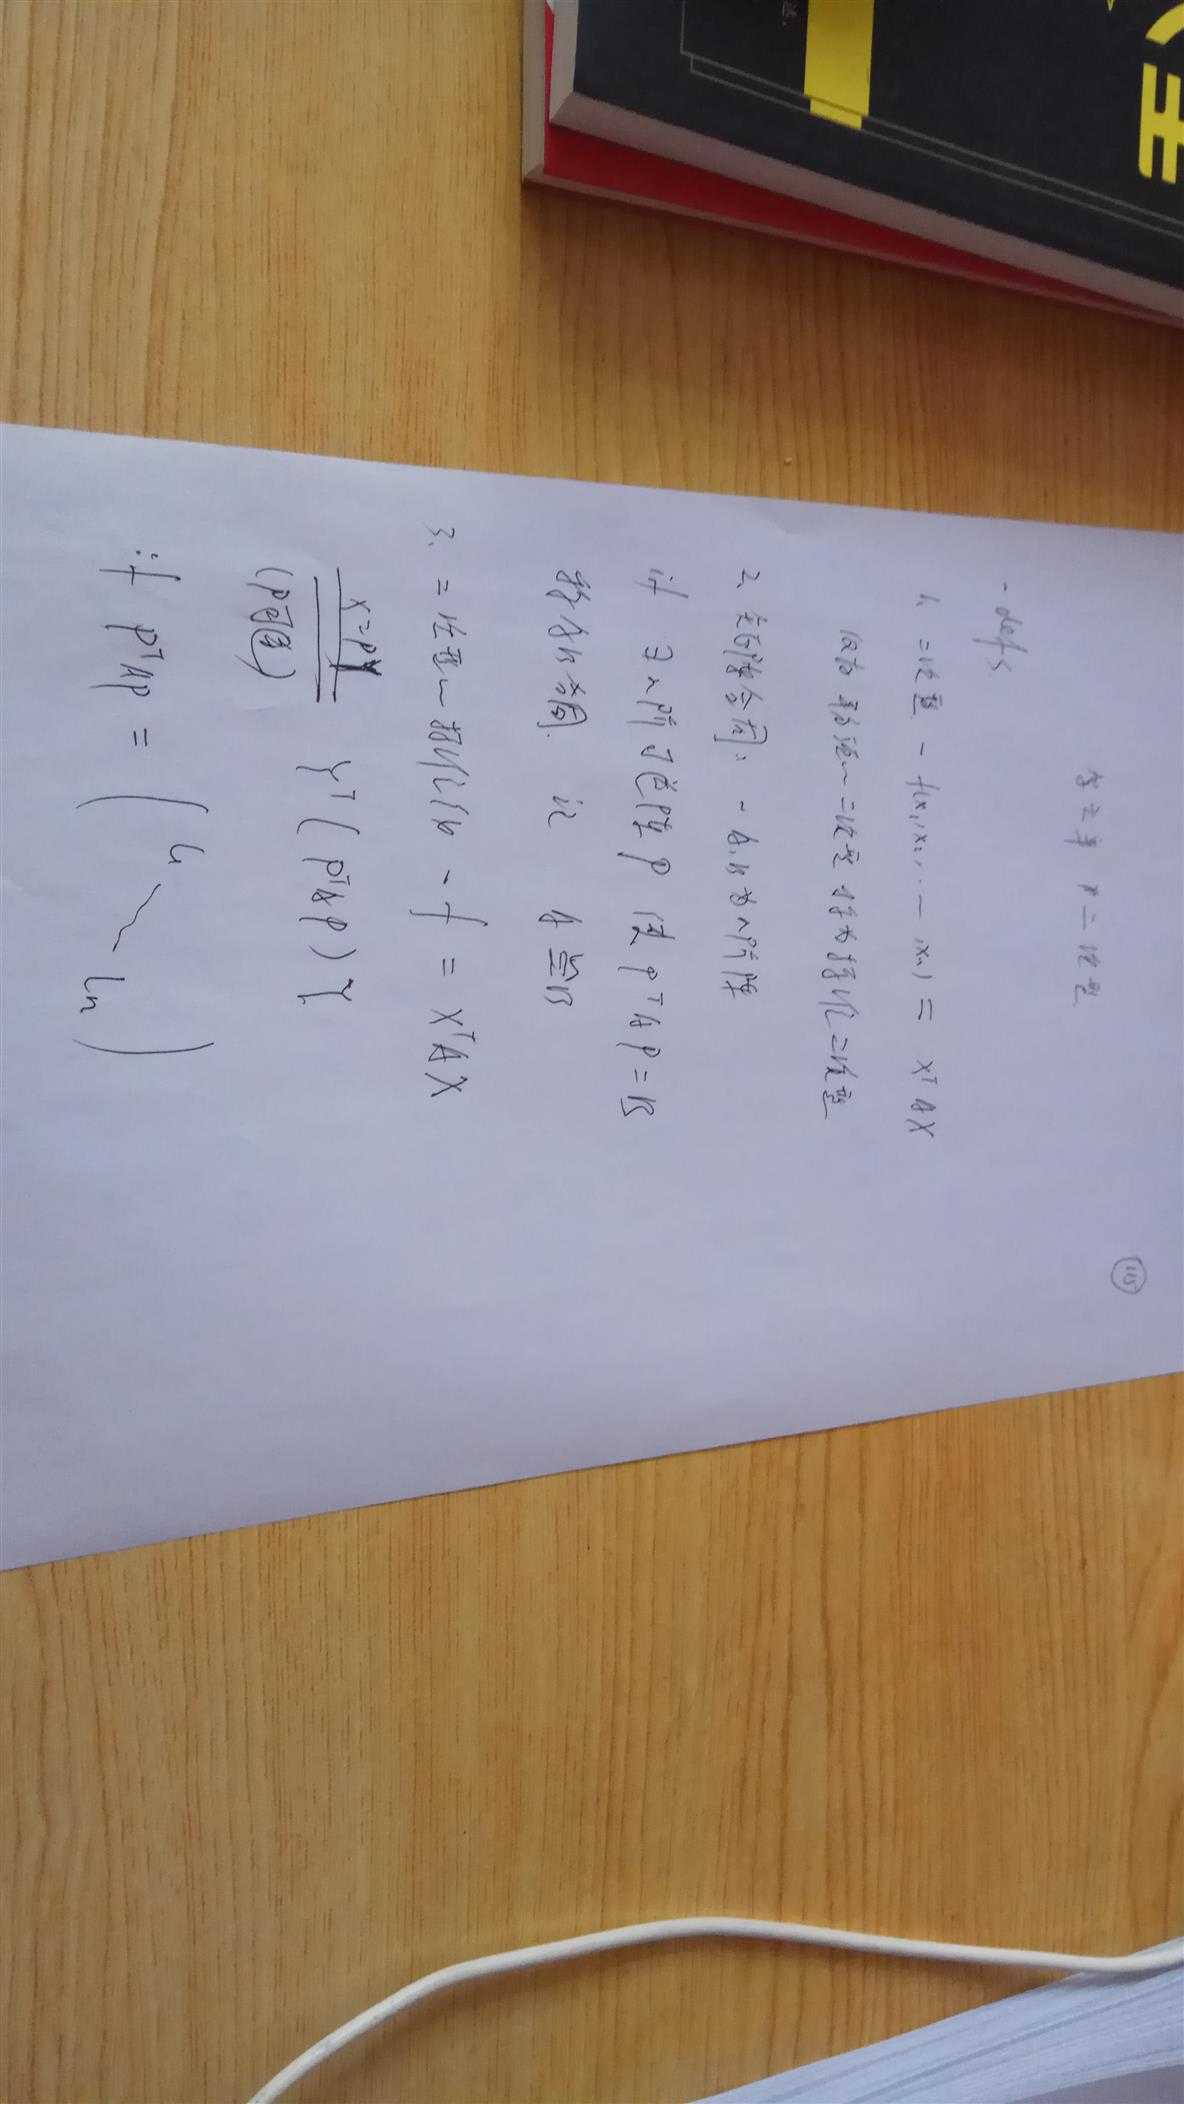 115
第六章 二次型
一 defs
1、二次型 — f(x₁,x₂,…,xₙ) = XᵀAX
二次型 标准二次型
2、矩阵合同：— A,B为n阶阵
if ∃n阶可逆阵P 使 PᵀAP=B
称A,B合同. 记 A≃B
3、二次型 标准化 — f = XᵀAX
X=PY
(P可逆) Yᵀ(PᵀAP)Y
if PᵀAP = ( l₁ ⋱ lₙ )